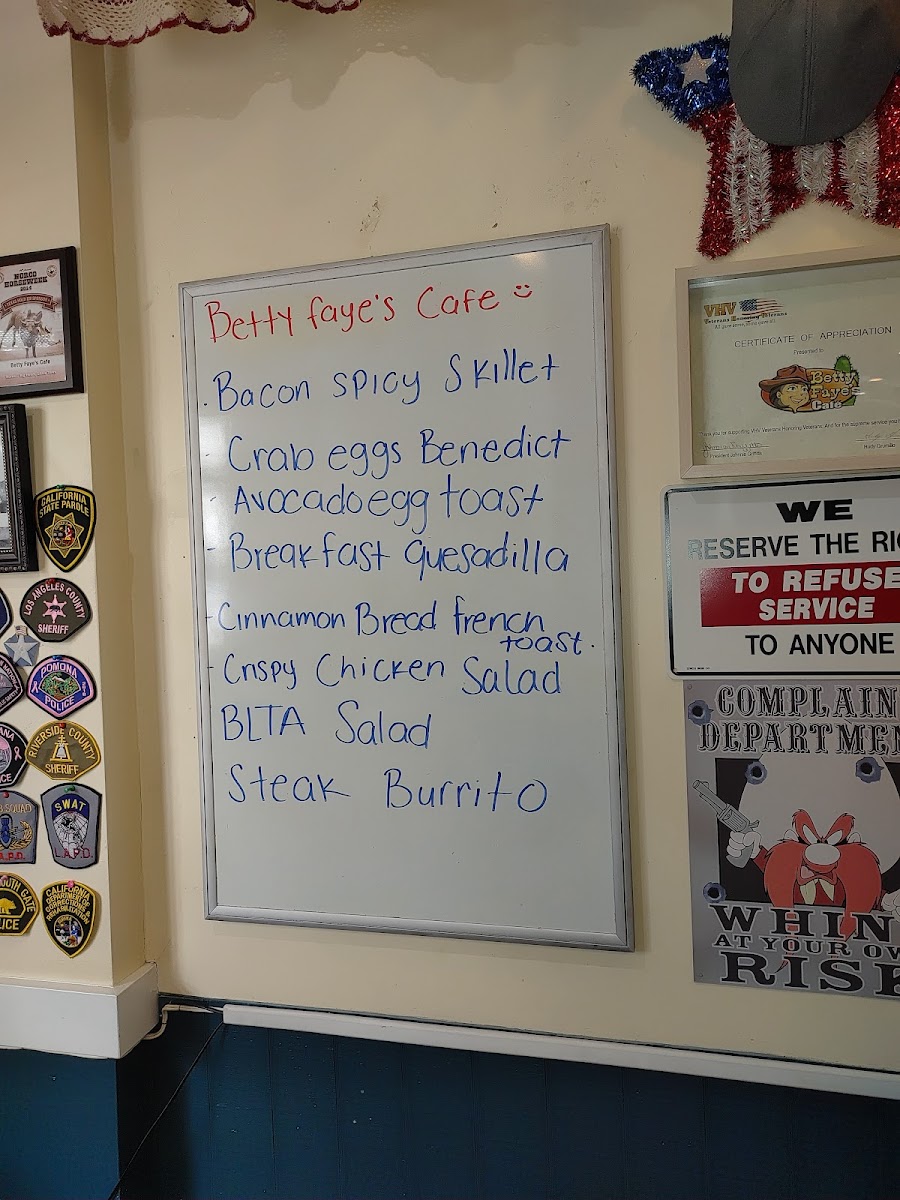 Betty faye's Cafe
. Bacon spicy Skillet
- Crab eggs Benedict
- Avocado egg toast
- Breakfast quesadilla
- Cinnamon Bread french
toast.
- Crispy Chicken Salad
BLTA Salad
Steak Burrito
NORCO
HORSEWEEK
Betty Faye's Cafe
CALIFORNIA
STATE PAROLE
LOS ANGELES COUNTY
SHERIFF
POMONA
POLICE
RIVERSIDE COUNTY
SHERIFF
SQUAD
SWAT
L.A.P.D.
SOUTH GATE
CALIFORNIA
DEPARTMENT OF
CORRECTIONS &
REHABILITATION
VHV
Veterans Honoring Veterans
CERTIFICATE OF APPRECIATION
Presented to
Betty
Faye's
Cafe
WE
RESERVE THE RIG
TO REFUSE
SERVICE
TO ANYONE
COMPLAIN
DEPARTMEN
WHIN
AT YOUR OW
RISK